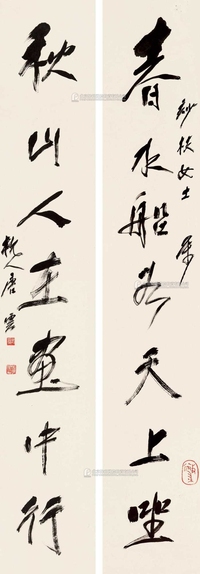 春水船如天上坐
纱枝女士属
秋山人在画中行
杭人唐云